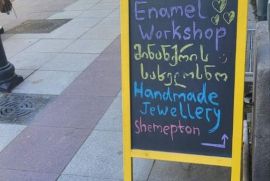 Enamel
Workshop
მინანქრის
სახელოსნო
Handmade
Jewellery
Shemepton